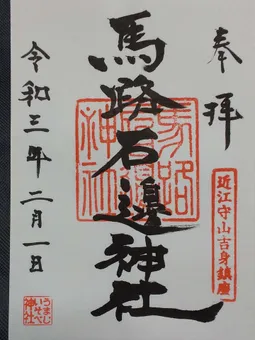 奉拝
馬路石邊神社
令和三年二月一日
近江守山吉身鎮座
馬路石邊神社
うまじいそべ神社